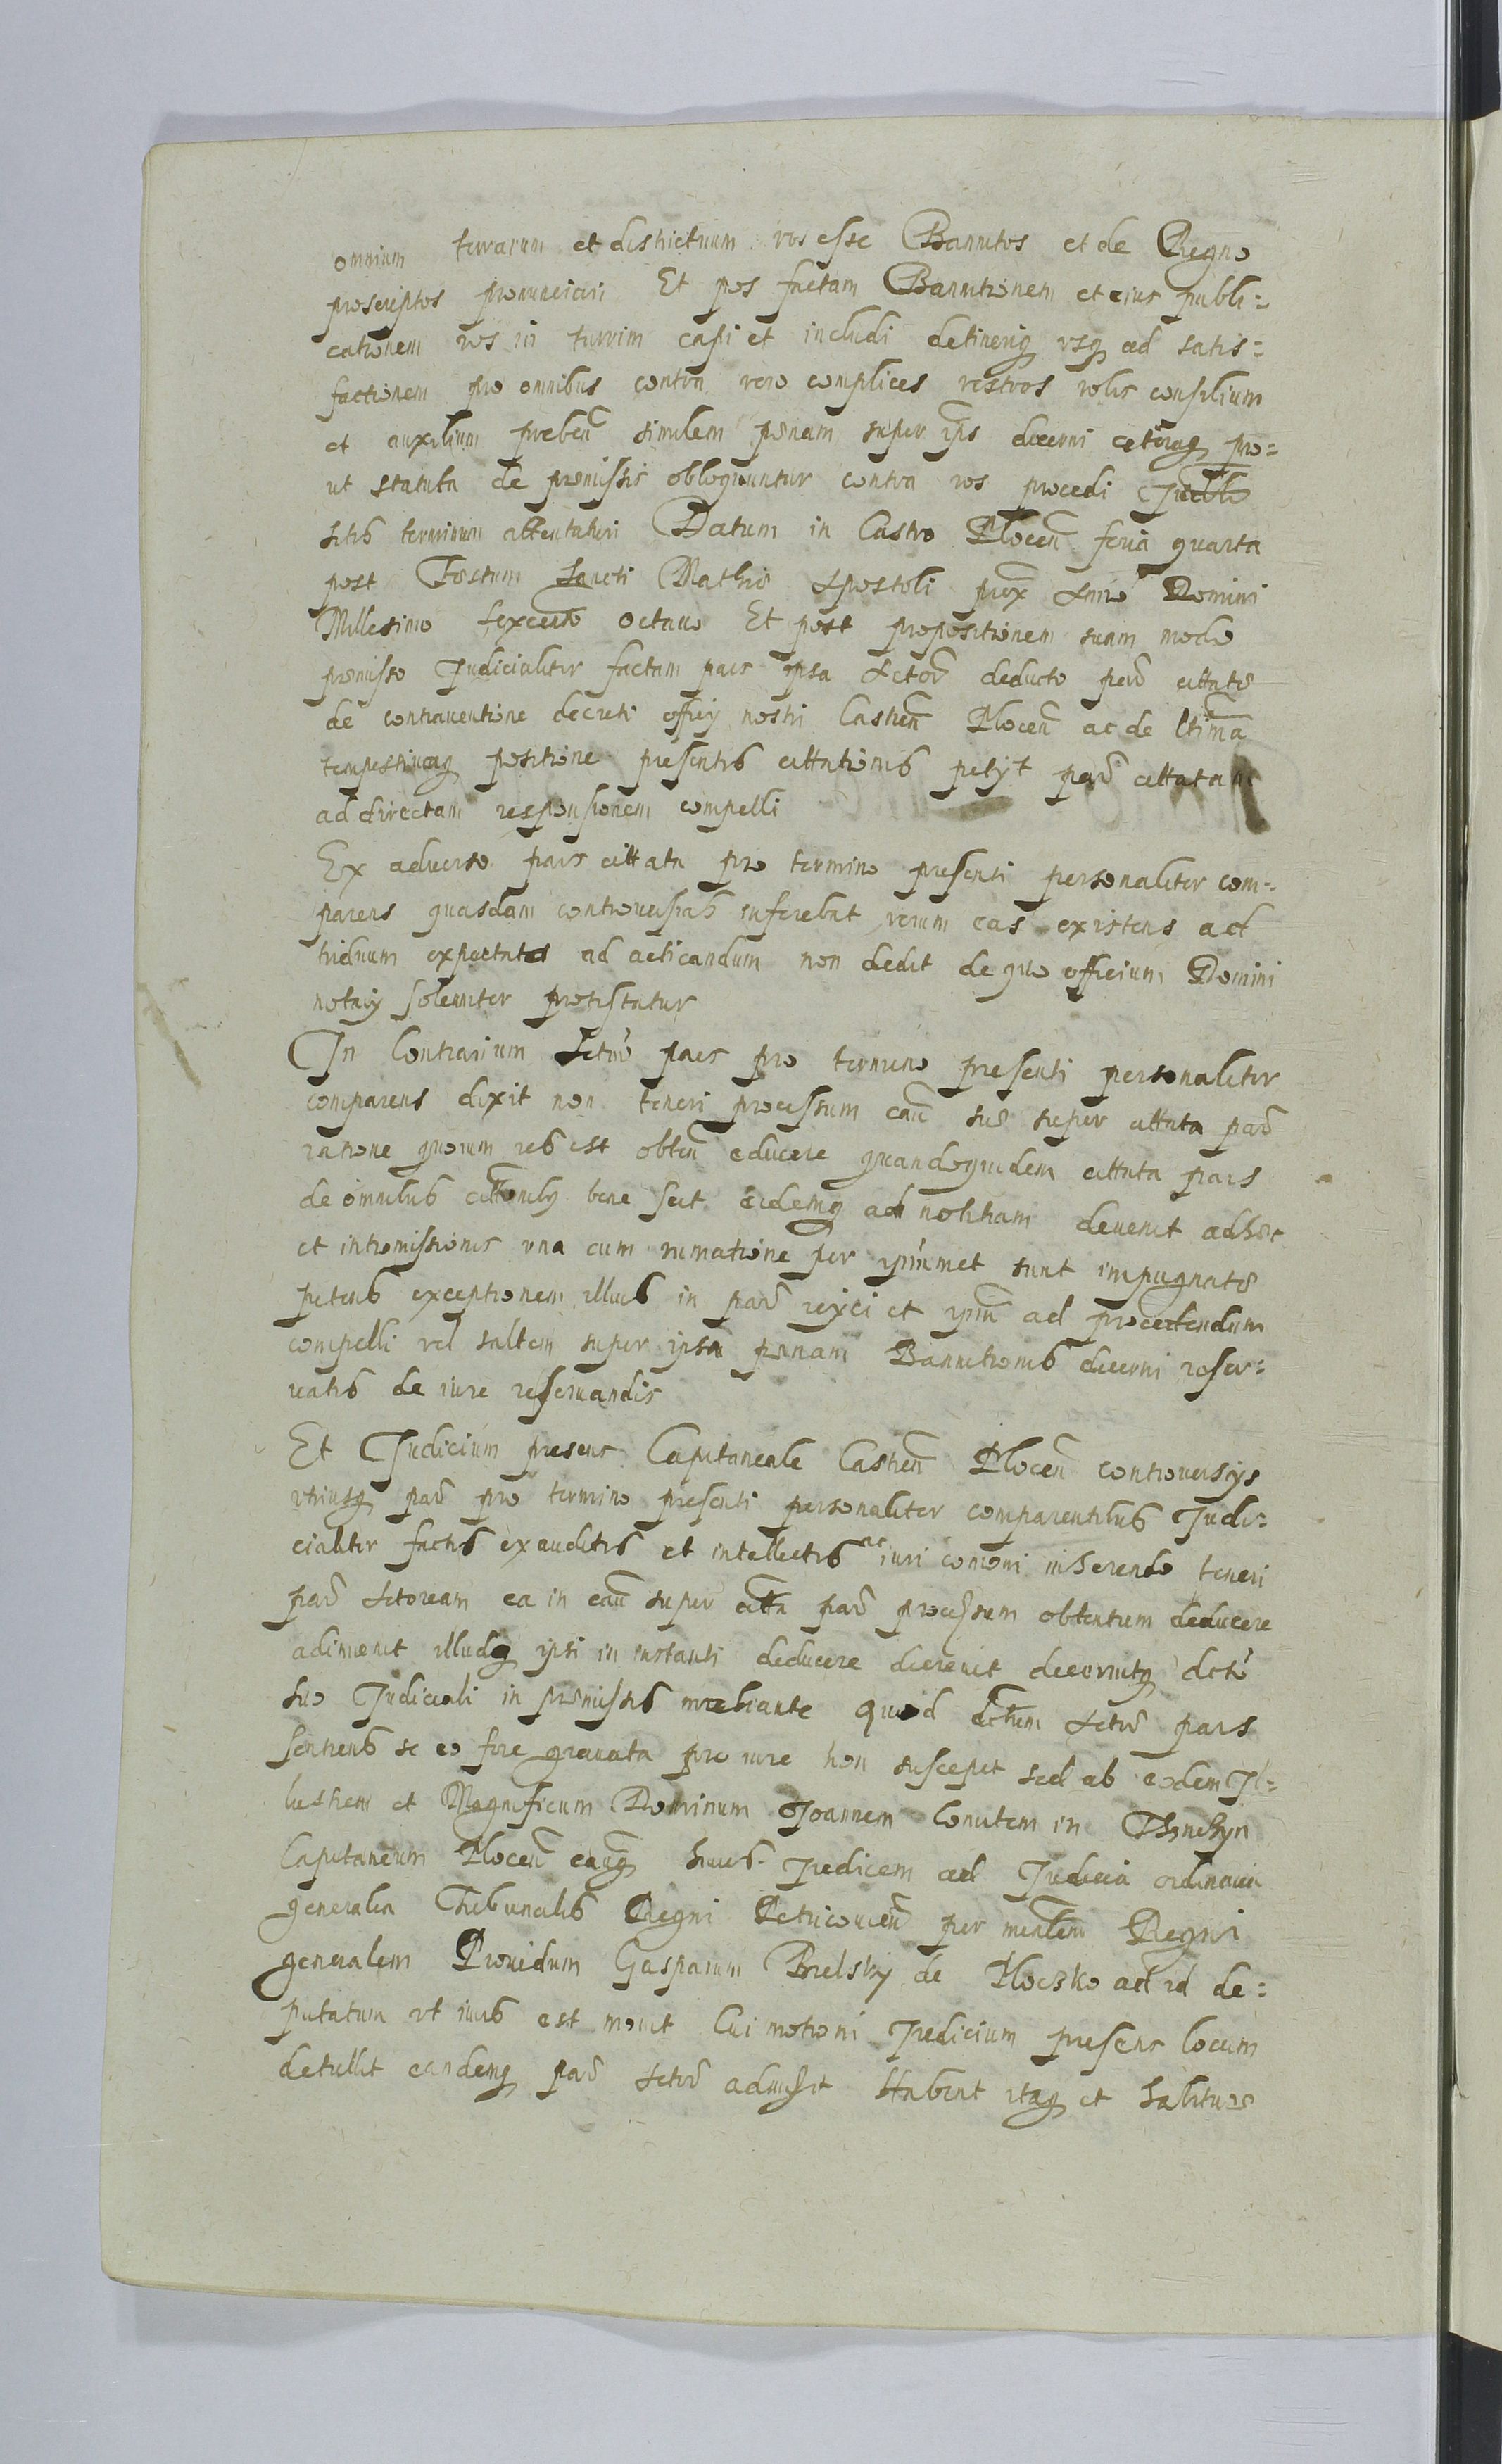 omnium terrarum et districtuum vos esse Bannitos et de Regno
proscriptos pronunciari Et pos factam Bannitionem et eius publi=
cationem vos in turrim capi et includi detineriq, vsq, ad satis=
factionem pro omnibus contra vero complices vestros vobis consilium
et auxilium preben̄ similem penam super ips decerni ceteraq, pro=
ut statuta de premissis obloquuntur contra vos procedi
sitis terminum attentaturi Datum in Castro Plocen̄ feria quarta
post Festum Sancti Mathie Apostoli prox Anno Domini
Millesimo sexcento octauo Et post propositionem suam modo
premisso Judicialiter factam pars ipsa Actor̄ deducto par̄ cittate
de contrauentione decreti officÿ nostri Castren̄ Plocen̄ ac de ltima
tempestiuaq, positione presentis cittationis petÿt par̄ cittatam
ad directam responsionem compelli
Ex aduerso pars cittata pro termino presenti personaliter com=
parens quasdam controuersias inferebat verum eas existens ad
triduum expectata ad acticandum non dedit de quo officium Domini
notarÿ solemniter protestatur
In Contrarium Actor̄ pars pro termino presenti personaliter
comparens dixit non teneri processum cau̅ sue super cittata par̄
ratione quorum res est obten̄ educere quandoquidem cittata pars
de omnibus bene scit eidemq, ad notitiam deuenit adhec
et intromissionis vna cum rumatione per ipsummet sunt impugnate
petens exceptionem illius in par̄ reÿci et ipsum̄ ad procedendum
compelli vel saltem super ipsa penam Bannitionis decerni reser=
uatis de iure reseruandis
Et Judicium presens Capitaneale Castren̄ Plocen̄ controuersÿs
vtriusq, par̄ pro termino presenti personaliter comparentibus Judi=
cialiter factis exauditis et intellectis ac iuri com̄oni inherendo teneri
par̄ Actoream ea in cau̅ super citta par̄ processum obtentum deducere
adinuenit illudq, ipsi in instanti deducere decreuit decernitq, dcto
suo Judiciali in premissis mediante Quod dctum Actor̄ pars
sentiens se eo fore grauata pro iure non suscepit sed ab eodem Il=
lustrem et Magnificum Dominum Joannem Comitem in Thenchÿn
Capitaneum Plocen̄ eauq, huius Judicem ad Judicia ordinaria
generalia Tribunalis Regni Petricouien̄ per mrialem Regni
generalem Prouidum Gasparum Bielsky de Ploczko ad id de=
putatum vt iuris est mouit Cui motioni Judicium presens locum
detullit eandemq, par̄ Actor̄ admisit Habent itaq, et habiture